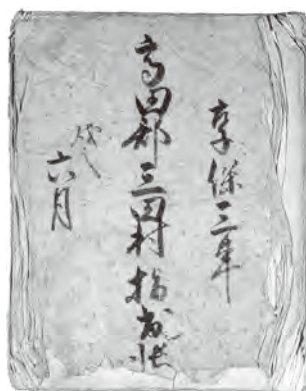 享保三年
高田郡三田村指出帳
戌ノ
六月